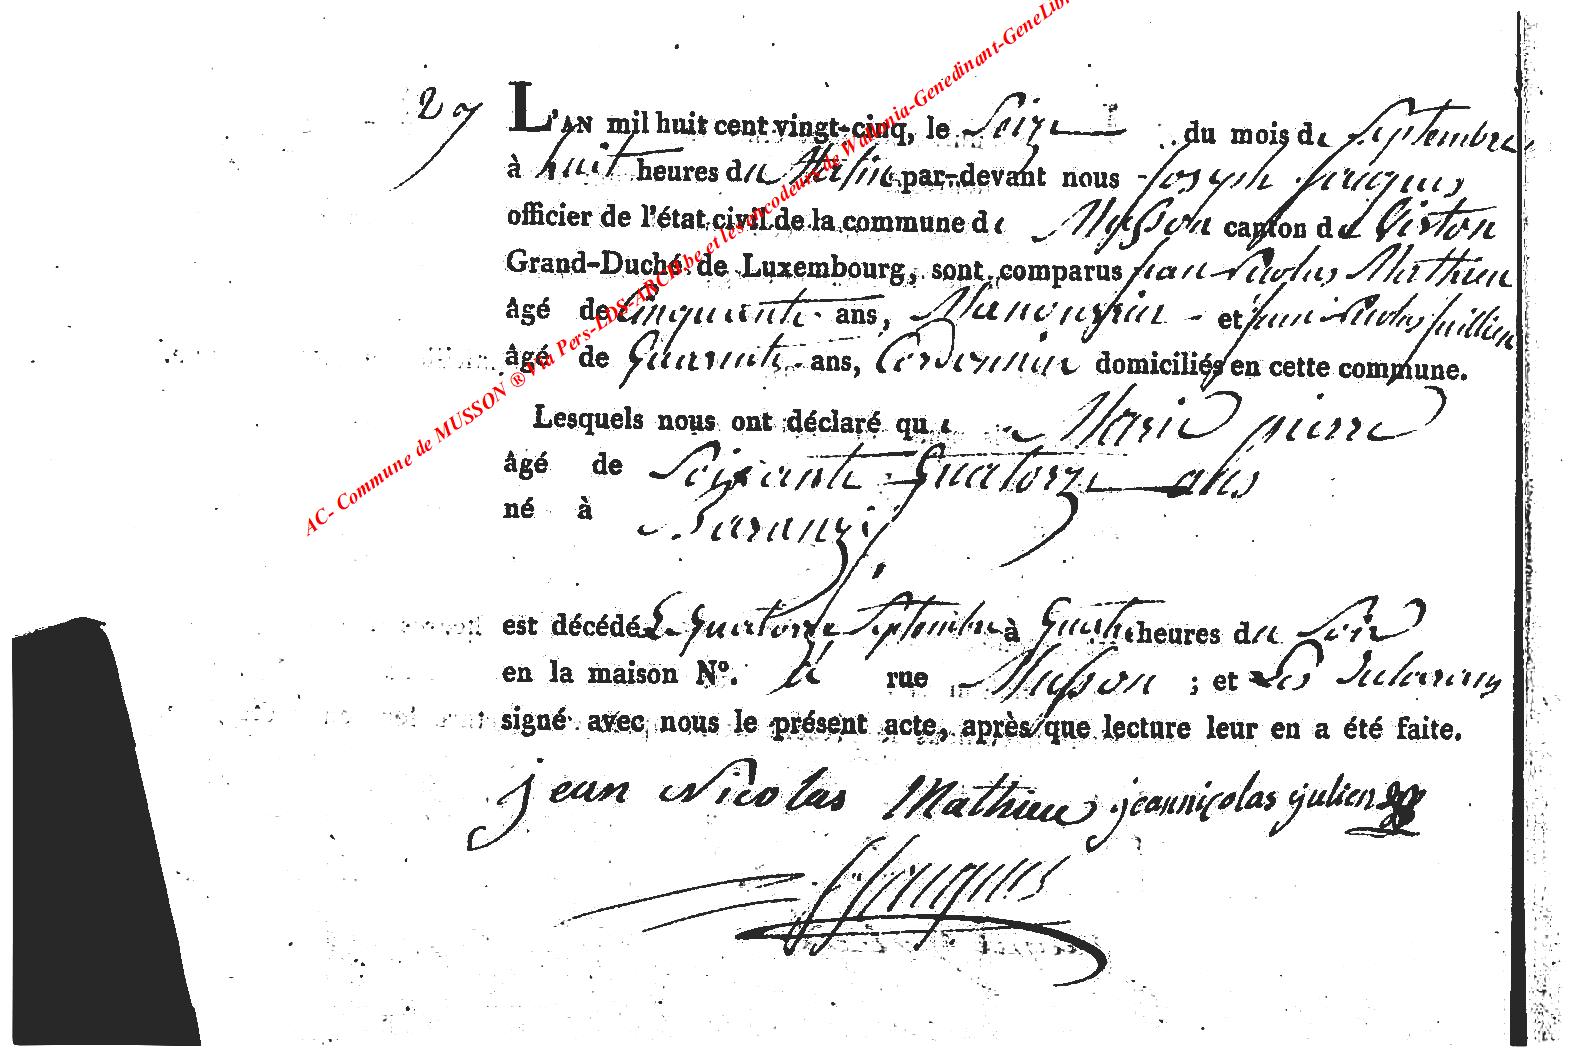 29
L'AN mil huit cent vingt-cinq, le Seize du mois de Septembre
à huit heures du Matin par-devant nous Joseph Jacques
officier de l'état civil de la commune de Musson canton de Virton
Grand-Duché de Luxembourg, sont comparus jean Nicolas Mathieu
âgé de cinquante ans, Manouvrier et jean Nicolas juillien
âgé de Quarante ans, Cordonnier domiciliés en cette commune.
Lesquels nous ont déclaré que Marie pierre
âgé de Soixante Quatorze ans
né à Baranzi
est décédé Le Quatorze Septembre à Quatre heures du Soir
en la maison Nº. à rue Musson ; et Les declarans
signé avec nous le présent acte, après que lecture leur en a été faite.
jean Nicolas Mathieu jean nicolas julien
Jacques
AC- Commune de MUSSON ® Via Pers-LDS-ARCH.be et les encodeurs de Wallonia-Genedinant-GeneLib